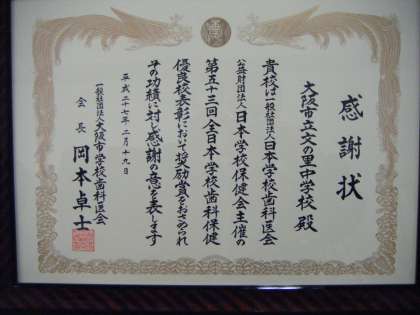 感謝状
大阪市立文の里中学校 殿
貴校は一般社団法人日本学校歯科医会
公益財団法人日本学校保健会主催の
第五十三回全日本学校歯科保健
優良校表彰において奨励賞をおさめられ
その功績に対し感謝の意を表します
平成二十七年二月十九日
一般社団法人大阪市学校歯科医会
会長 岡本卓士